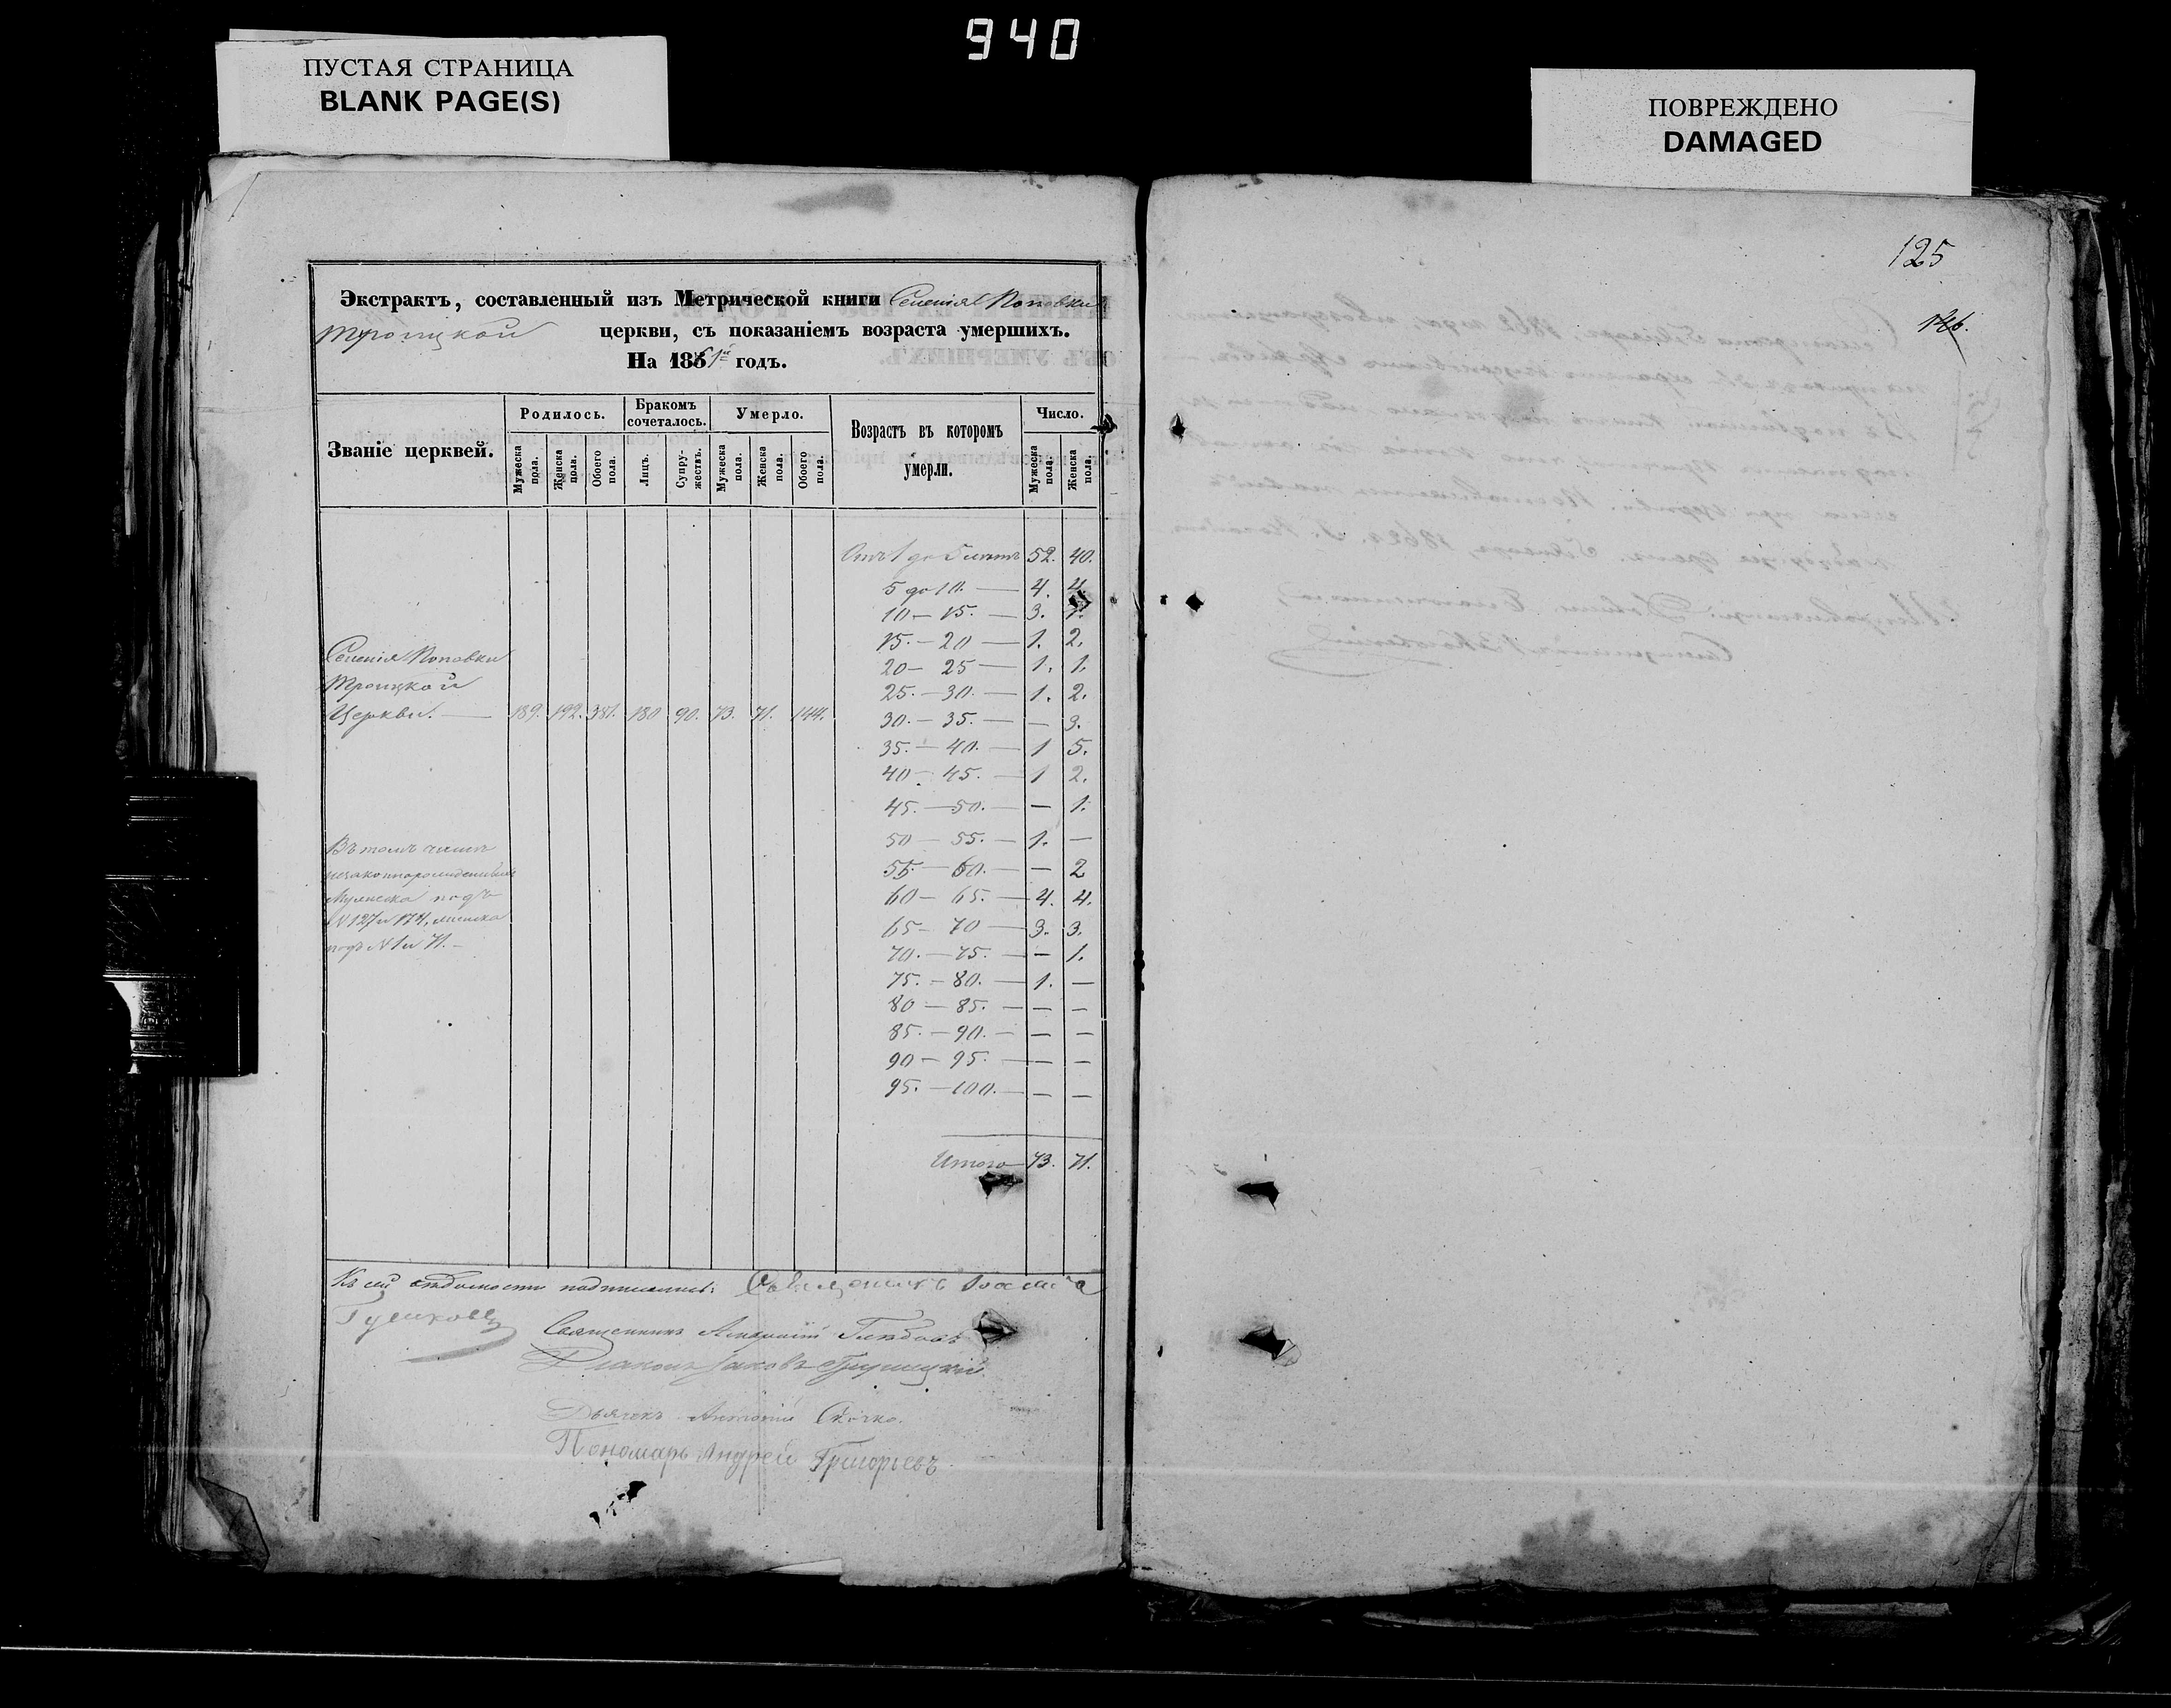 940
ПУСТАЯ СТРАНИЦА
BLANK PAGE(S)
ПОВРЕЖДЕНО
DAMAGED
Экстрактъ, составленный изъ Метрической книги Селенія Поповки
Троицкой церкви, съ показаніемъ возраста умершихъ.
На 1861й годъ.
Званіе церквей.
Родилось.
Бракомъ сочеталось.
Умерло.
Возрастъ въ которомъ умерли.
Число.
Мужеска пола.
Женска пола.
Обоего пола.
Лицъ.
Супружествъ.
Мужеска пола.
Женска пола.
Обоего пола.
Мужеска пола.
Женска пола.
Отъ 1 до 5 лѣтъ 52. 40.
5 до 10. — 4. 4.
10 — 15. — 3. 1.
15. — 20 — 1. 2.
20 — 25 — 1. 1.
25. — 30. — 1. 2.
30. — 35. — — 3.
35. — 40. — 1 5.
40 — 45. — 1 2.
45. — 50. — — 1.
50 — 55. — 1. —
55. — 60. — — 2
60 — 65. — 4. 4.
65 — 70 — 3. 3.
70. — 75. — — 1.
75. — 80. — 1. —
80 — 85. — — —
85. — 90. — — —
90 — 95. — — —
95. — 100. — — —
Итого — 73. 71.
Селенія Поповки
Троицкой
Церкви. — 189. 192. 381. 180 90. 73. 71. 144.
Въ томъ числѣ
незаконнорожденныхъ
Мужеска подъ
№ 127 и 174, женска
подъ № 1 и 71. —
Къ сей вѣдомости подписались: Священникъ Іоаннъ
Священникъ Глѣбовъ
Діаконъ Іаковъ
Дьячекъ Антоній
Пономарь Андрей Григорьевъ
125
146.